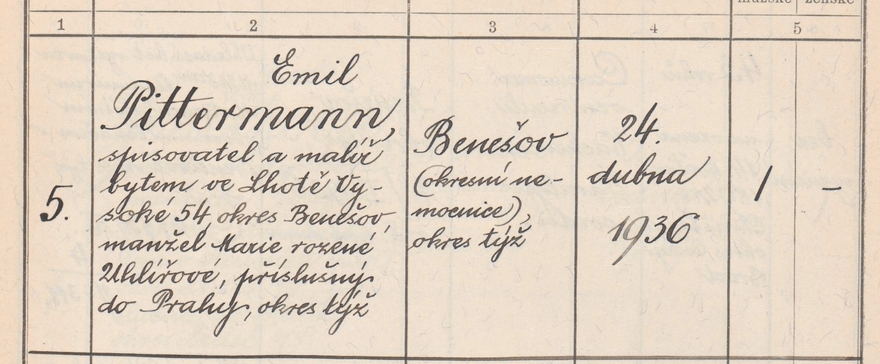 mužské ženské
1 2 3 4 5
Emil
Pittermann,
spisovatel a malíř
bytem ve Lhotě Vy-
soké 54, okres Benešov,
manžel Marie rozené
Uhlířové, příslušný
do Prahy, okres týž
5.
Benešov
(okresní ne-
mocnice),
okres týž
24.
dubna
1936
/ –